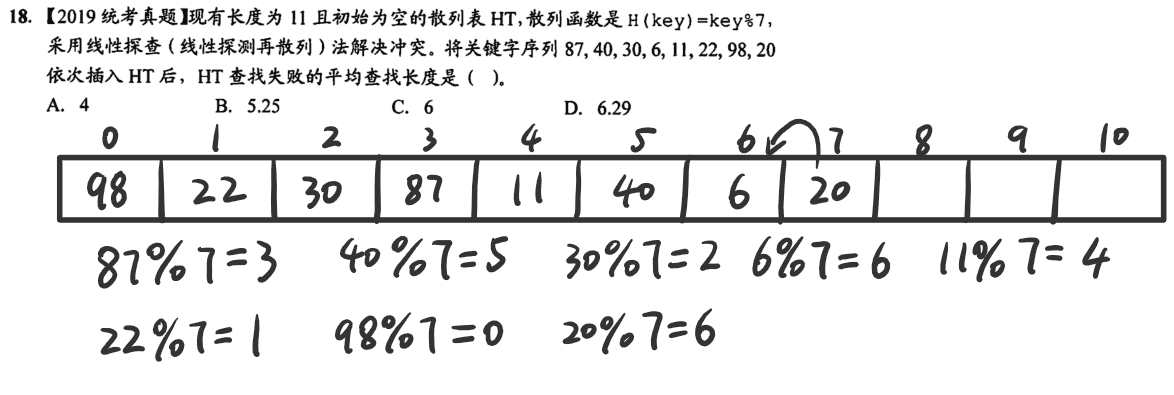 18. 【2019 统考真题】现有长度为 11 且初始为空的散列表 HT,散列函数是 H(key)=key%7,
采用线性探查(线性探测再散列)法解决冲突。将关键字序列 87, 40, 30, 6, 11, 22, 98, 20
依次插入 HT 后，HT 查找失败的平均查找长度是( )。
A. 4 B. 5.25 C. 6 D. 6.29
0 1 2 3 4 5 6 7 8 9 10
98 22 30 87 11 40 6 20
87%7=3 40%7=5 30%7=2 6%7=6 11%7=4
22%7=1 98%7=0 20%7=6